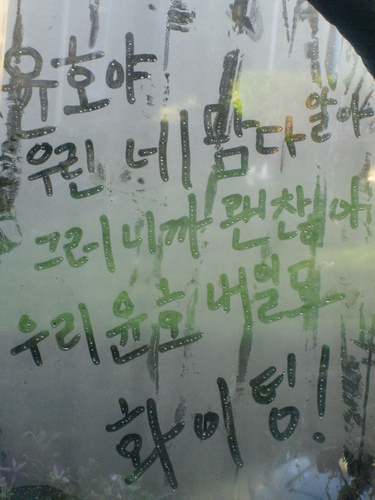 윤호야
우린 네 맘 다 알아
그러니까 괜찮아
우리 윤호 내일도
화이팅!